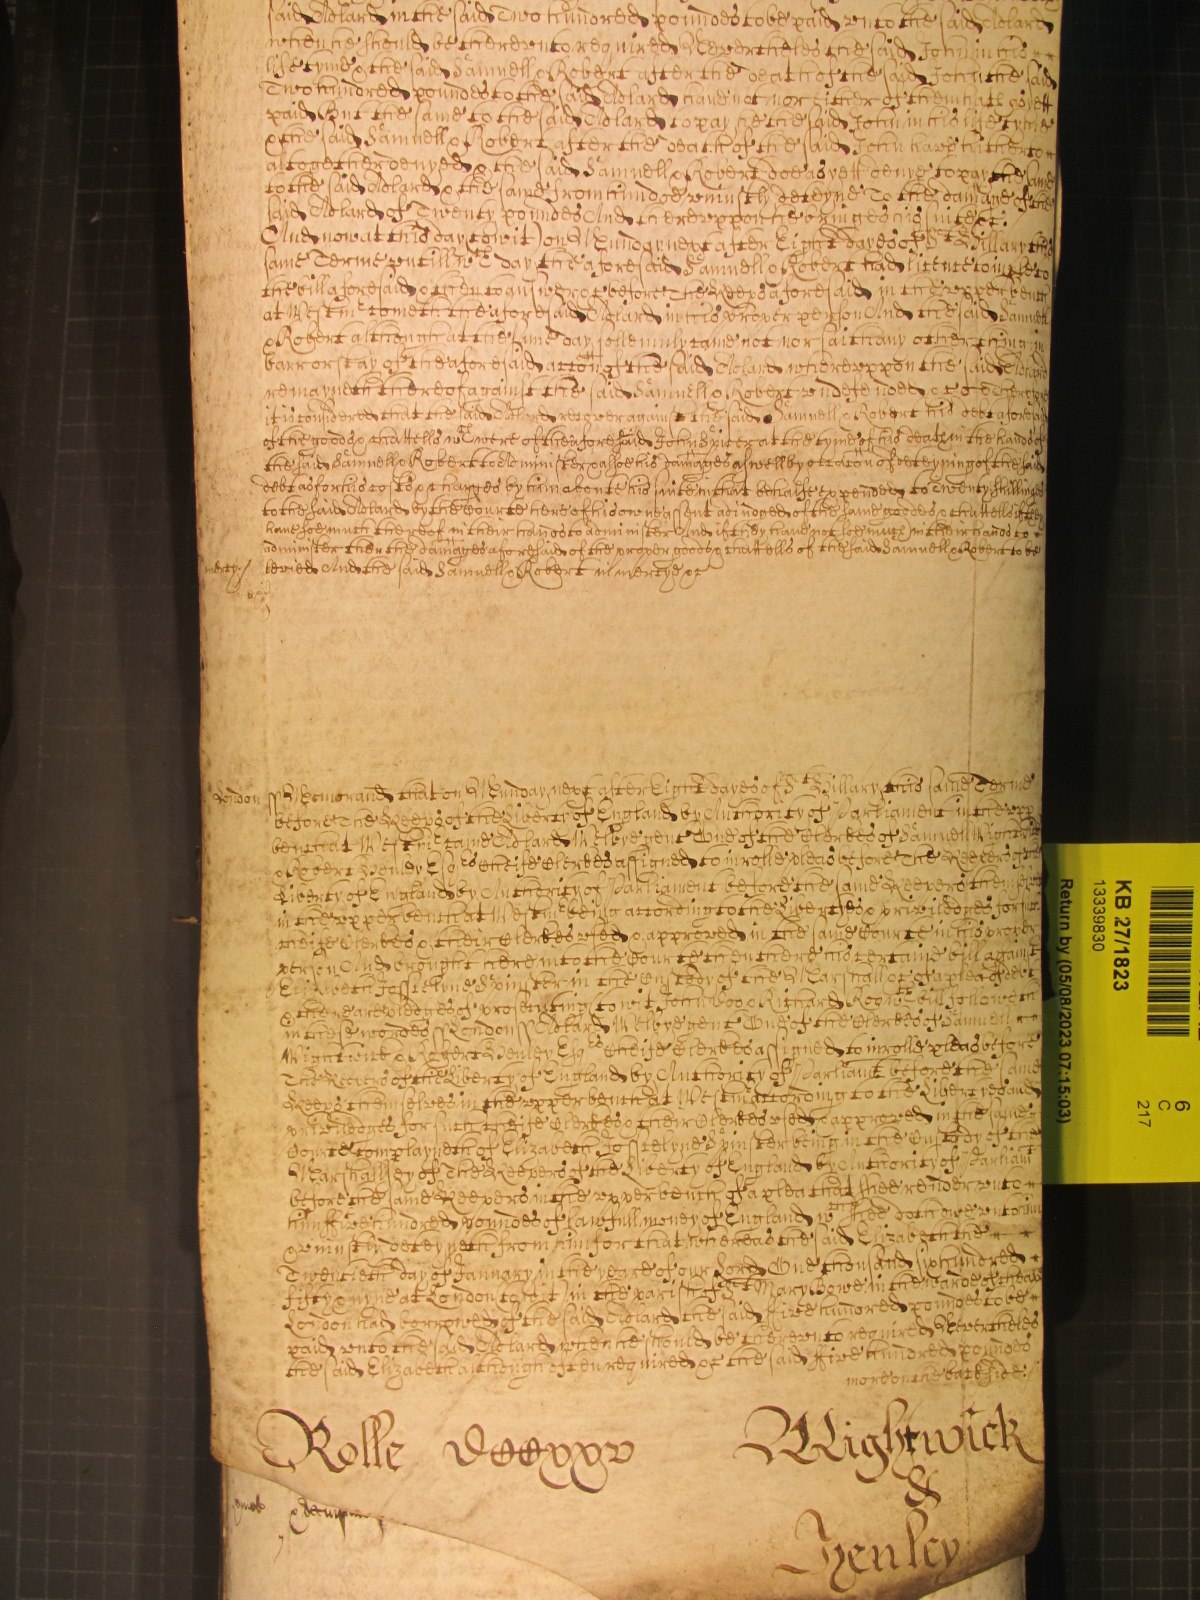 said Adlard in the said Two hundred poundes to be paid unto the said Adlard
when he should be thereunto required Neverthelesse the said John in his
life tyme & the said Samuell & Robert after the death of the said John the said
Two hundred poundes to the said Adlard have not nor either of them hath
paid But the same to the said Adlard to pay hee the said John in his life tyme
& the said Samuell & Robert after the death of the said John have hitherto
altogether denyed & the said Samuell & Robert doe as yett denye to pay the same
to the said Adlard & the same from him doe uniustly deteyne To the damage of the
said Adlard of Twenty poundes And thereuppon he bringes his suite &c.
And now at this day (to wit) on Munday next after Eight dayes of St Hillary this
same Terme untill wch day the aforesaid Samuell & Robert had licence to imple to
the bill aforesaid & then to answere &c before The Keepers aforesaid in the upper bench
at Westmr cometh the aforesaid Adlard in his proper person And the said Samuell
& Robert although at the same day sollemnly came not nor say any other thing in
barr or stay of the aforesaid action of the said Adlard whereuppon the said Adlard
remayneth thereof against the said Samuell & Robert undefended &c Therefore
it is considered that the said Adlard recover against the said Samuell & Robert his debt aforesaid
of the goods & chattells wch were of the aforesaid John Spicer at the tyme of his death in the hands of
the said Samuell & Robert to administer & alsoe his damages aswell by occacon of deteyning of the said
debt as for his costs & charges by him about his suite in that behalfe expended to Twenty shillinges
to the said Adlard by the Court here of his owne assent adiudged of the same goods & chattells if they
have soe much thereof in their hands to administer And if they have not soe much in their hands to
administer then the damages aforesaid of the proper goods & chattells of the said Samuell & Robert to be
mercy levied And the said Samuell & Robert in mercy &c
London ss Memorand that on Munday next after Eight dayes of St Hillary this same Terme
before The Keepers of the Liberty of England by Authority of Parliament in the upper
bench at Westmr came Adlard Welbye gent One of the Clerkes of Samuell Wightwick
& Robert Henley Esqs Cheife Clerkes assigned to inrolle pleas before The Keepers of the
Liberty of England by Authority of Parliament before the same Keepers themselves
in the upper bench at Westmr being according to the Libertyes & priviledges for such
cheife Clerkes & their Clerkes used & approved in the same Courte in his proper
person And brought here into the Court then there his certaine bill against
Elizabeth Josselyne Spinster in the Custody of the Marshall &c of a plea of debt
& there are pledges of prosecuting to wit John Doo & Richard Roo wch bill followeth
in these wordes ss London ss Adlard Welbye gent One of the Clerkes of Samuell
Wightwick & Robert Henley Esqs Cheife Clerkes assigned to inrolle pleas before
The Keepers of the Liberty of England by Authority of Parliamt before the same
Keeps themselves in the upper bench at Westmr according to the Libertyes and
priviledges for such cheife Clerkes & their Clerkes used & approved in the same
Courte complayneth of Elizabeth Josselyne Spinster being in the Custody of the
Marshallsey of The Keepers of the Liberty of England by Authority of Parliamt
before the same Keepers in the upper bench of a plea that shee render unto
him five hundred poundes of lawfull money of England wch shee doth owe unto him
& uniustly deteyneth from him for that whereas the said Elizabeth the
Twentieth day of January in the yeare of our Lord One thousand six hundred
fifty & nyne at London to wit in the parish of St Mary Bowe in the warde of Cheap
London had borrowed of the said Adlard the said five hundred poundes to be
paid unto the said Adlard when she should be thereunto required Neverthelesse
the said Elizabeth although often required &c the said five hundred poundes
more on the backside.
Rolle Dccxxv Wightwick
&
Henley
KB 27/1823
13339830
Return by (05/08/2023 07:15:03)
6
C
217